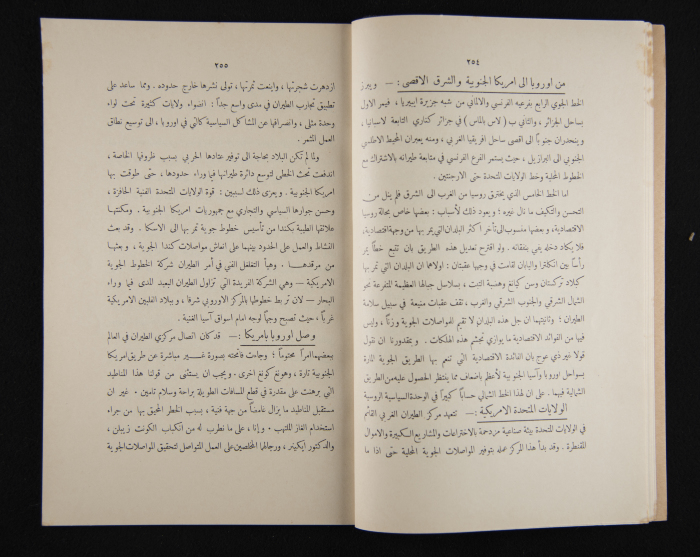 ٢٥٤
من اوروبا الى امريكا الجنوبية والشرق الاقصى : — ويبرز
الخط الجوي الرابع بفرعيه الفرنسي والالماني من شبه جزيرة ايبيريا ، فيمر الاول
بساحل الجزائر ، والثاني ب ( لاس بالماس ) في جزائر كناري التابعة لاسبانيا ،
وينحدران جنوباً الى اقصى ساحل افريقيا الغربي ، ومنه يعبران المحيط الاطلسي
الجنوبي الى البرازيل ، حيث يستمر الفرع الفرنسي في متابعة طيرانه بالاشتراك مع
الخطوط المحلية وخط الولايات المتحدة حتى الارجنتين .
اما الخط الخامس الذي يخترق روسيا من الغرب الى الشرق فلم ينل من
التحسن والتكيف ما نال غيره ؛ ويعود ذلك لأسباب : بعضها خاص بحالة روسيا
الاقتصادية ، وبعضها منسوب الى تأخر اكثر البلدان التي يمر بها من وجهة اقتصادية ،
فلا يكاد دخله يفي بنفقاته . ولو اقترح تعديل هذه الطريق بان تتبع خطاً يمر
رأساً بين انكلترا واليابان لقامت في وجهها عقبتان : اولاهما ان البلدان التي تمر بها
كبلاد تركستان وسن كيانغ وهضبة التبت ، بسلاسل جبالها العظيمة المتفرعة نحو
الشمال الشرقي والجنوب الشرقي والغرب ، تقف عقبات منيعة في سبيل سلامة
الطيران ؛ وثانيتهما ان جل هذه البلدان لا تقيم للمواصلات الجوية وزناً ، وليس
فيها من الفوائد الاقتصادية ما يوازي تجشم هذه الهلكات . وبمقدورنا ان نقول
قولا غير ذي عوج بان الفائدة الاقتصادية التي تنعم بها الطريق الجوية المارة
بسواحل اوروبا وآسيا الجنوبية لأعظم باضعاف مما ينتظر الحصول عليه من الطريق
الشمالية فيهما . على ان لهذا الخط الشمالي حساباً كبيراً في الوحدة السياسية الروسية
الولايات المتحدة الامريكية : — تتعهد مركز الطيران الغربي القائم
في الولايات المتحدة بيئة صناعية مزدحمة بالاختراعات والمشاريع الكبيرة والاموال
المقنطرة . وقد بدأ هذا المركز عمله بتوفير المواصلات الجوية المحلية حتى اذا ما
٢٥٥
ازدهرت شجرتها ، واينعت ثمرتها ، تولى نشرها خارج حدوده . ومما ساعد على
تطبيق تجارب الطيران في مدى واسع جداً : انضواء ولايات كثيرة تحت لواء
وحدة مثلى ، وانصرافها عن المشاكل السياسية كالتي في اوروبا ، الى توسيع نطاق
العمل المثمر .
ولما لم تكن البلاد بحاجة الى توفير عتادها الحربي بسبب ظروفها الخاصة ،
اندفعت تحث الخطى لتوسع دائرة طيرانها فيما وراء حدودها ، حتى طوقت بها
امريكا الجنوبية . ويعزى ذلك لسببين : قوة الولايات المتحدة الفنية الحافزة ،
وحسن جوارها السياسي والتجاري مع جمهوريات امريكا الجنوبية . ومكنتها
علائقها الطيبة بكندا من تأسيس خطوط جوية تمر بها الى الاسكا . وقد بعث
النشاط والعمل على الحدود بينهما على انعاش مواصلات كندا الجوية ، وبعثها
من مرقدهـا . وهيأ التغلغل الفني في أمر الطيران شركة الخطوط الجوية
الامريكية — وهي الشركة الفريدة التي تزاول الطيران البعيد المدى فيما وراء
البحار — لان تربط خطوطها بالمركز الاوروبي شرقا ، وببلاد الفلبين الامريكية
غرباً ، حيث تصبح وجهاً لوجه امام اسواق آسيا الغنية .
وصل اوروبا بامريكا : — قد كان اتصال مركزي الطيران في العالم
بعضهما امراً محتوماً ؛ وجاءت فاتحته بصورة غـــير مباشرة عن طريق امريكا
الجنوبية تارة ، وهونغ كونغ اخرى . ويجب ان يستثنى من قولنا هذا المناطيد
التي برهنت على مقدرة في قطع المسافات الطويلة براحة وسلام تامين . غير ان
مستقبل المناطيد ما يزال غامضاً من جهة فنية ، بسبب الخطر المحيق بها من جراء
استخدام الغاز الملتهب . وإنا ، على ما نطرب له من انكباب الكونت زيبلن ،
والدكتور ايكينر ، ورجالهما المخلصين على العمل المتواصل لتحقيق المواصلات الجوية